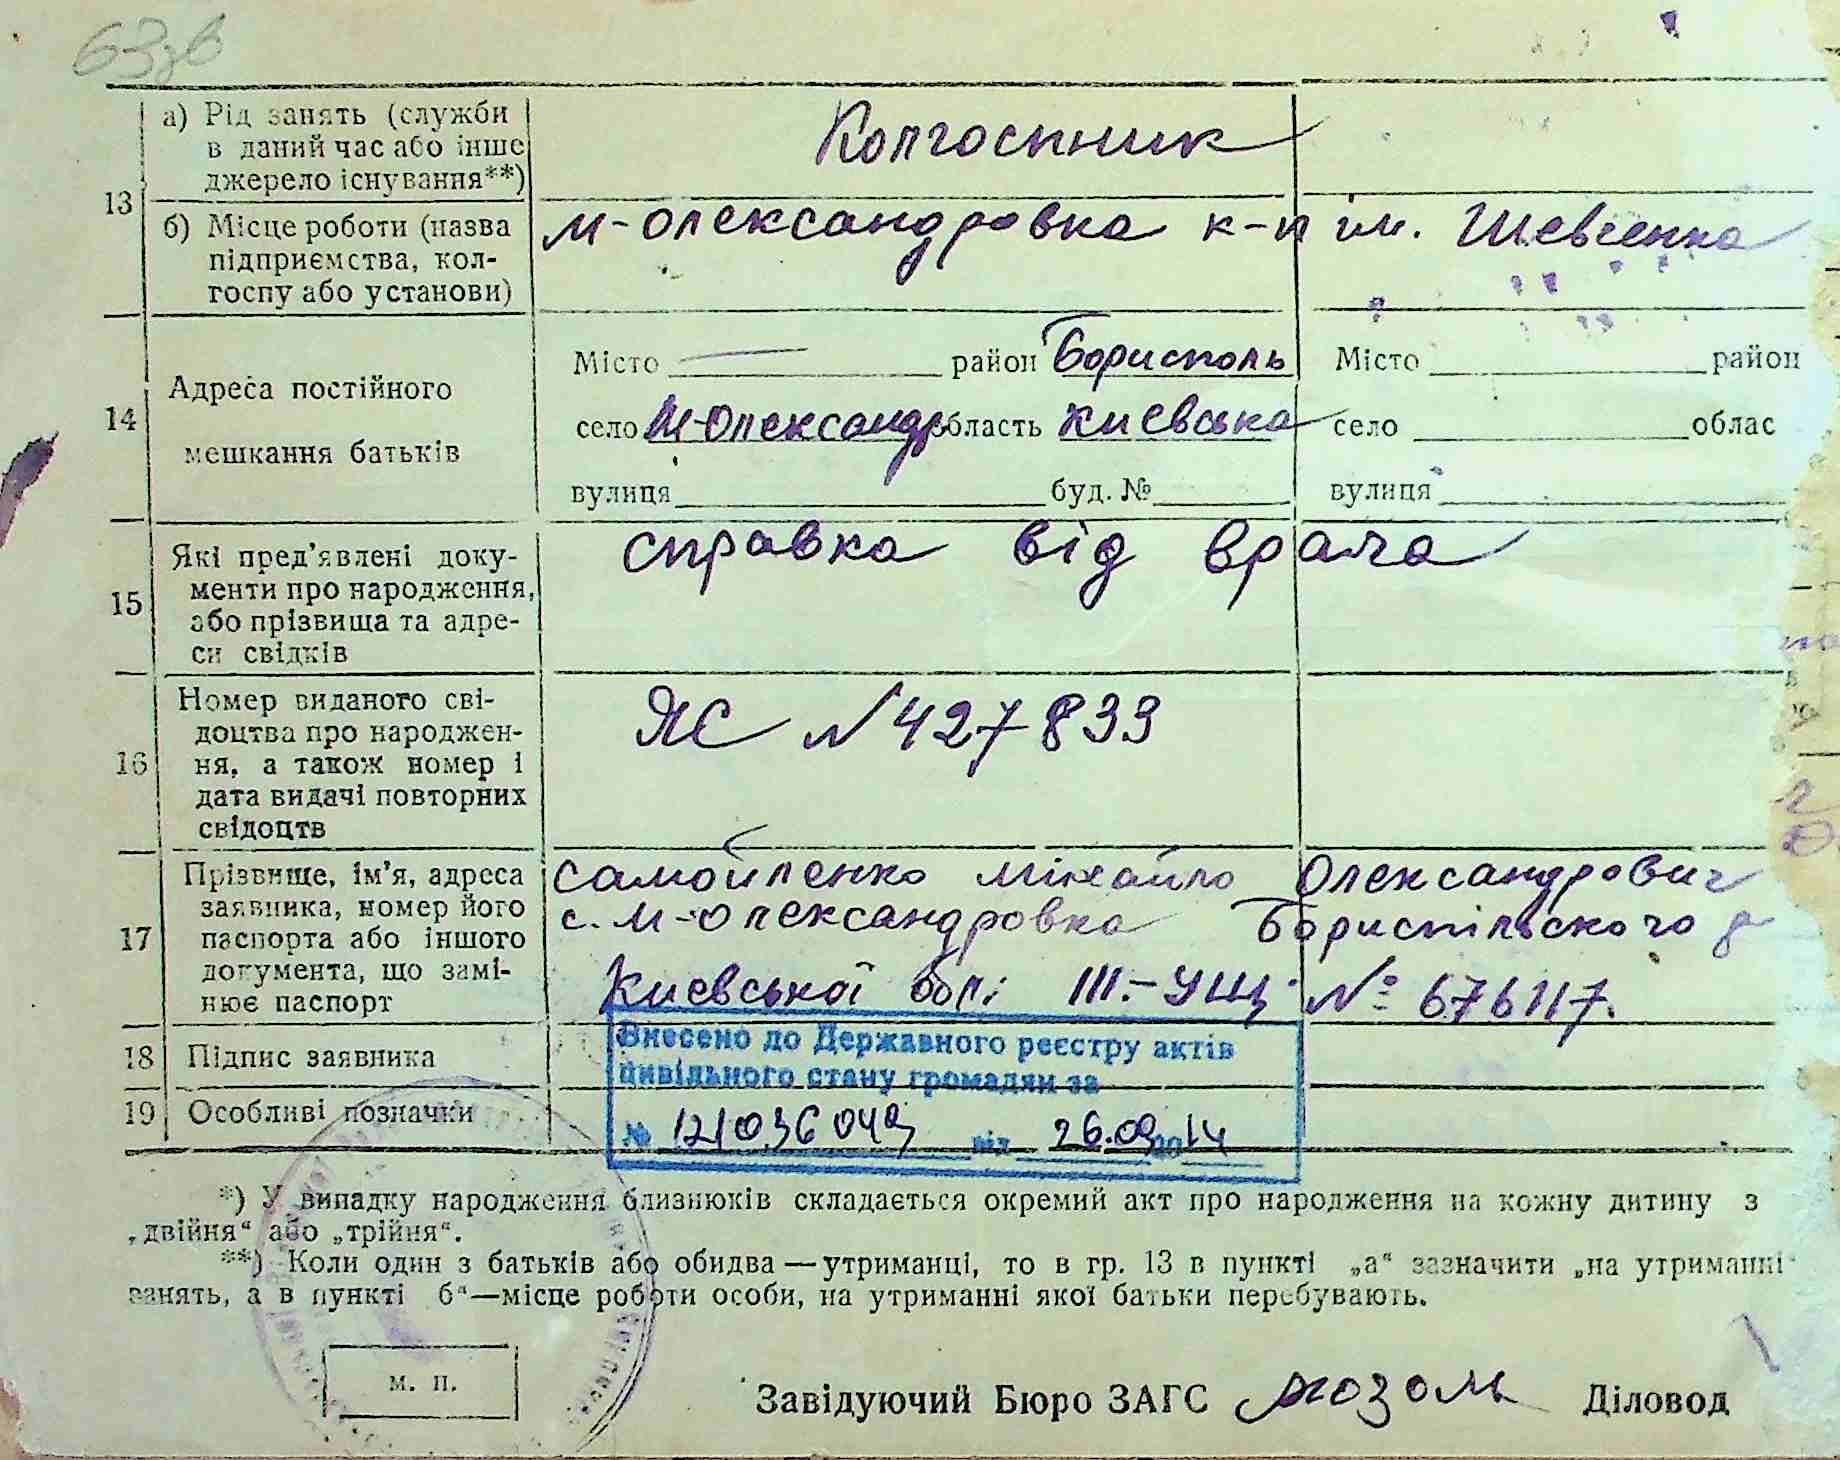 63зв
13
а) Рід занять (служби в даний час або інше джерело існування**)
Колгоспник
б) Місце роботи (назва підприємства, колгоспу або установи)
М-Олександровка к-п ім. Шевченка
14
Адреса постійного мешкання батьків
Місто — район Борисполь Місто район
село М-Олександр область Киевська село облас
вулиця буд. № вулиця
15
Які пред'явлені документи про народження, або прізвища та адреси свідків
справка від врача
16
Номер виданого свідоцтва про народження, а також номер і дата видачі повторних свідоцтв
ЯС №427833
17
Прізвище, ім'я, адреса заявника, номер його паспорта або іншого документа, що замінює паспорт
Самойленко Михайло Олександрович
с. М-Олександровка Бориспільского р
Киевської обл. III-УЩ № 676117.
18 Підпис заявника
19 Особливі позначки
Внесено до Державного реєстру актів
цивільного стану громадян за
№ від 26.09 2014
*) У випадку народження близнюків складається окремий акт про народження на кожну дитину з
„двійня“ або „трійня“.
**) Коли один з батьків або обидва — утриманці, то в гр. 13 в пункті „а“ зазначити „на утриманні
занять, а в пункті б“—місце роботи особи, на утриманні якої батьки перебувають.
м. п.
Завідуючий Бюро ЗАГС Мозоль Діловод